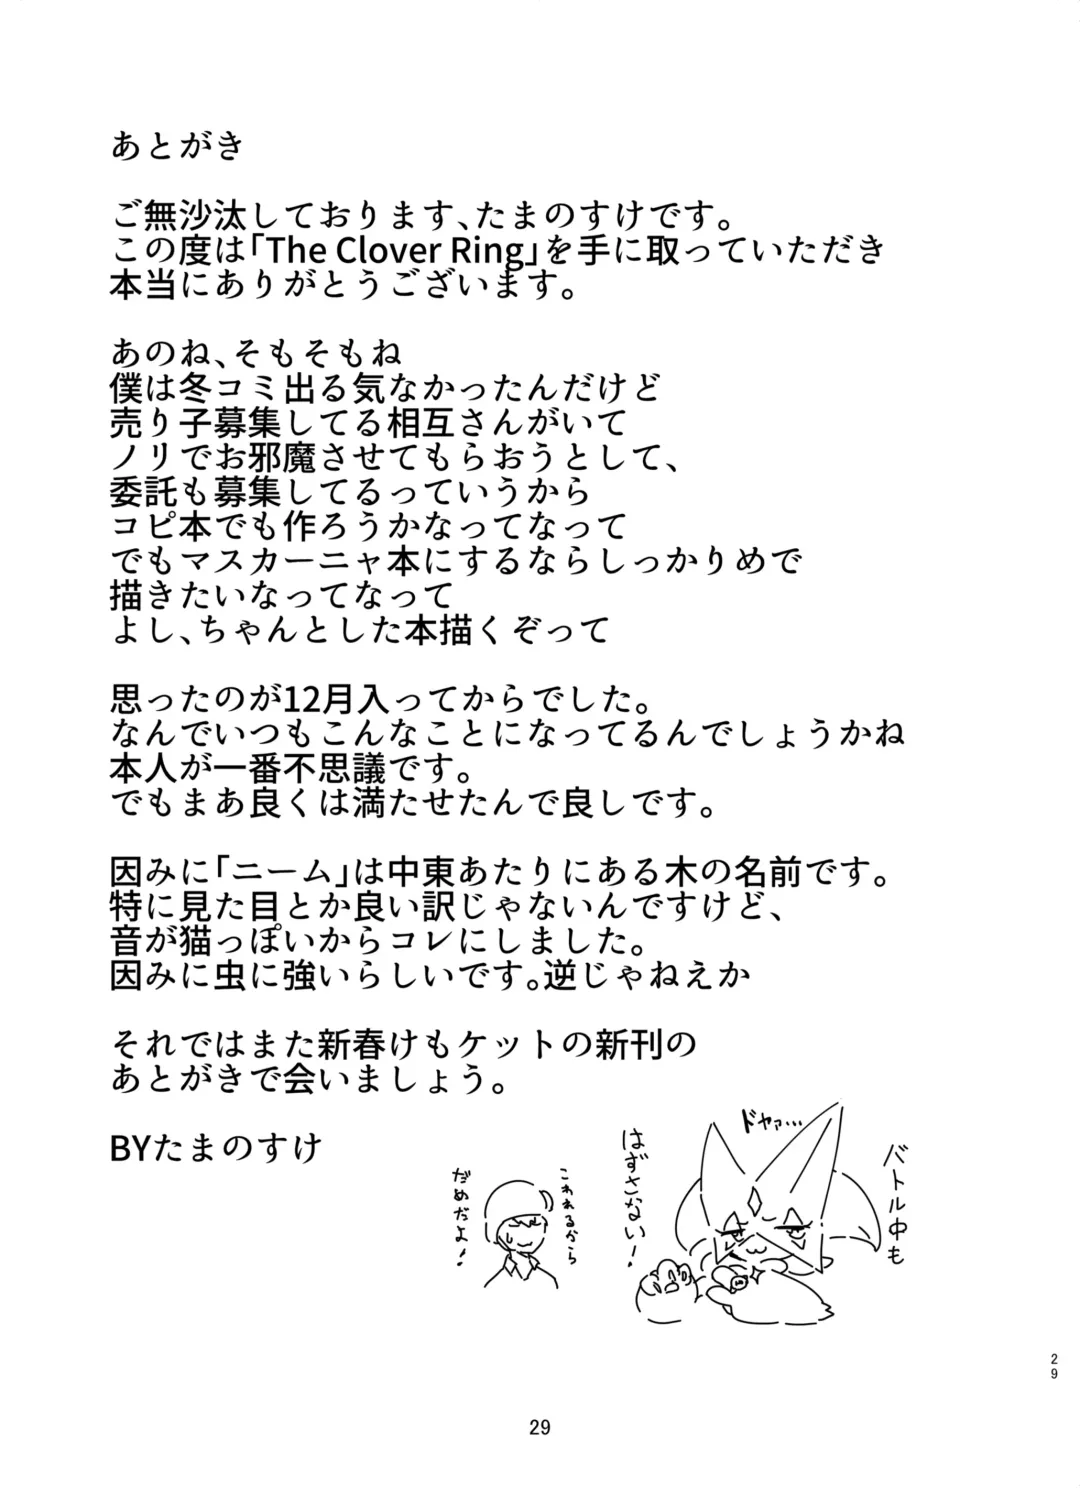 あとがき
ご無沙汰しております、たまのすけです。
この度は「The Clover Ring」を手に取っていただき
本当にありがとうございます。
あのね、そもそもね
僕は冬コミ出る気なかったんだけど
売り子募集してる相互さんがいて
ノリでお邪魔させてもらおうとして、
委託も募集してるっていうから
コピ本でも作ろうかなってなって
でもマスカーニャ本にするならしっかりめで
描きたいなってなって
よし、ちゃんとした本描くぞって
思ったのが12月入ってからでした。
なんでいつもこんなことになってるんでしょうかね
本人が一番不思議です。
でもまあ良くは満たせたんで良しです。
因みに「ニーム」は中東あたりにある木の名前です。
特に見た目とか良い訳じゃないんですけど、
音が猫っぽいからコレにしました。
因みに虫に強いらしいです。逆じゃねえか
それではまた新春けもケットの新刊の
あとがきで会いましょう。
BYたまのすけ
バトル中も
はずさない!
ドヤァ…
こわれるから
だめだよ!
29
29